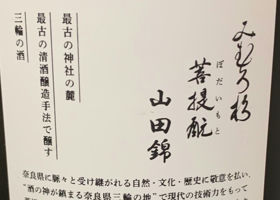 みむろ杉
ぼだいもと
菩提酛
山田錦
最古の神社の麓
最古の清酒醸造手法で醸す
三輪の酒
奈良県に脈々と受け継がれる自然・文化・歴史に敬意を払い、
“酒の神が鎮まる奈良県三輪の地”で現代の技術力をもって